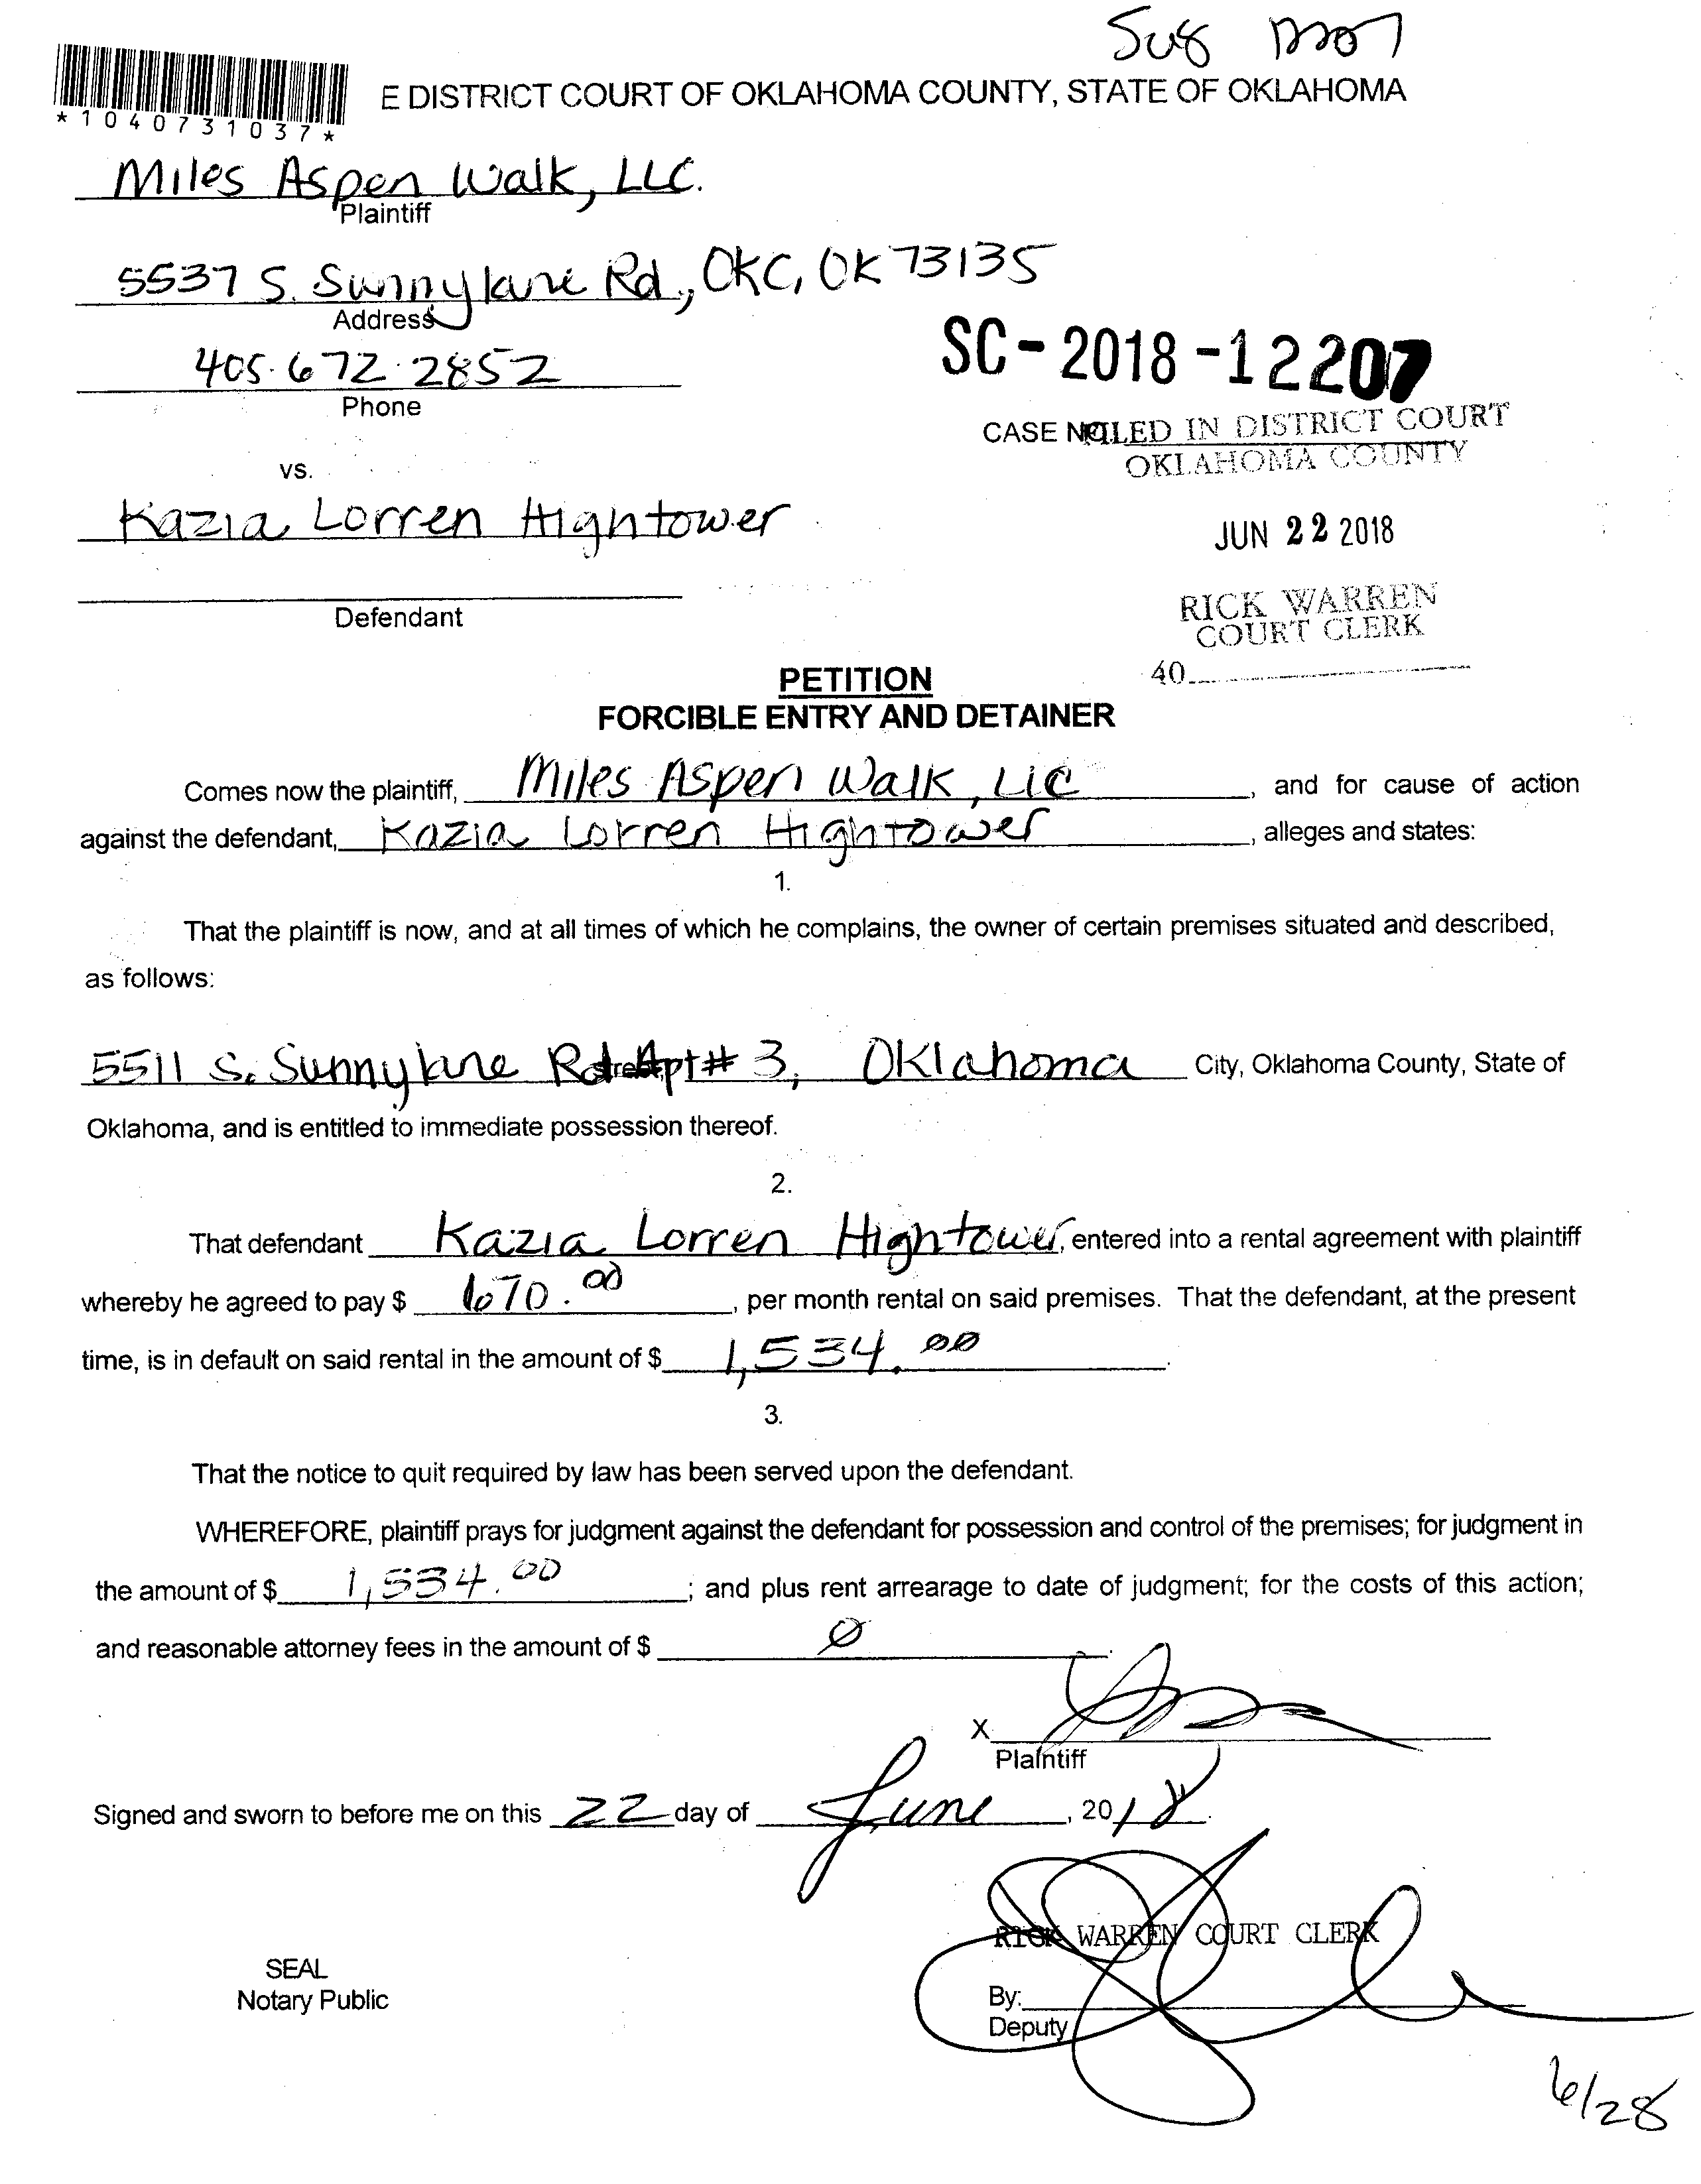 E DISTRICT COURT OF OKLAHOMA COUNTY, STATE OF OKLAHOMA
*1040731037*
Miles Aspen Walk, LLC.
Plaintiff
5537 S. Sunnylane Rd., OKC, OK 73135
Address
405.672.2852
Phone
SC-2018-12207
CASE NO
FILED IN DISTRICT COURT
OKLAHOMA COUNTY
vs.
Kazia Lorren Hightower
JUN 22 2018
Defendant
RICK WARREN
COURT CLERK
40
PETITION
FORCIBLE ENTRY AND DETAINER
Comes now the plaintiff, Miles Aspen Walk, LLC, and for cause of action
against the defendant, Kazia Lorren Hightower, alleges and states:
1.
That the plaintiff is now, and at all times of which he complains, the owner of certain premises situated and described,
as follows:
5511 S. Sunnylane Rd Apt# 3, Oklahoma City, Oklahoma County, State of
Oklahoma, and is entitled to immediate possession thereof.
2.
That defendant Kazia Lorren Hightower, entered into a rental agreement with plaintiff
whereby he agreed to pay $ 670.00, per month rental on said premises. That the defendant, at the present
time, is in default on said rental in the amount of $ 1,534.00.
3.
That the notice to quit required by law has been served upon the defendant.
WHEREFORE, plaintiff prays for judgment against the defendant for possession and control of the premises; for judgment in
the amount of $ 1,534.00; and plus rent arrearage to date of judgment; for the costs of this action;
and reasonable attorney fees in the amount of $ Ø.
X
Plaintiff
Signed and sworn to before me on this 22 day of June, 2018.
RICK WARREN COURT CLERK
SEAL
Notary Public
By:
Deputy
6/28